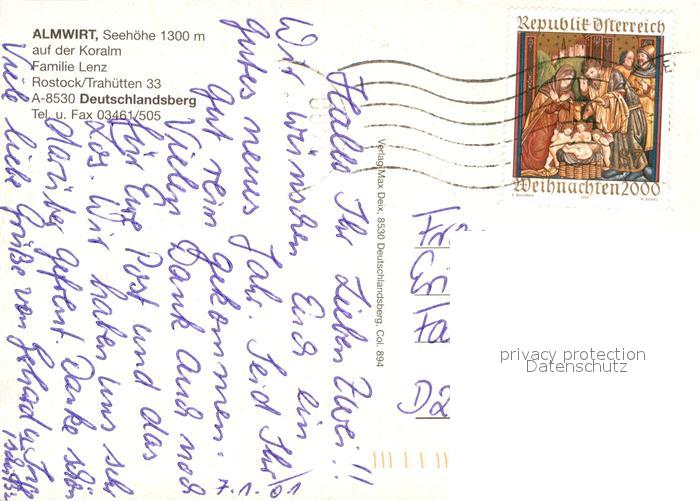 ALMWIRT, Seehöhe 1300 m
auf der Koralm
Familie Lenz
Rostock/Trahütten 33
A-8530 Deutschlandsberg
Tel. u. Fax 03461/505
Hallo Ihr Lieben Zwei!!
Wir wünschen Euch ein
gutes neues Jahr. Seid Ihr
gut rein gekommen.
Vielen Dank auch noch
für Eure Post und das
Los. Wir haben uns sehr
darüber gefreut. Danke schön
Viele liebe Grüße von Gehard u.
7.1.01
Verlag Max Deix, 8530 Deutschlandsberg, Col. 894
Republik Österreich
Weihnachten 2000
Fr
Fa
D2
privacy protection
Datenschutz